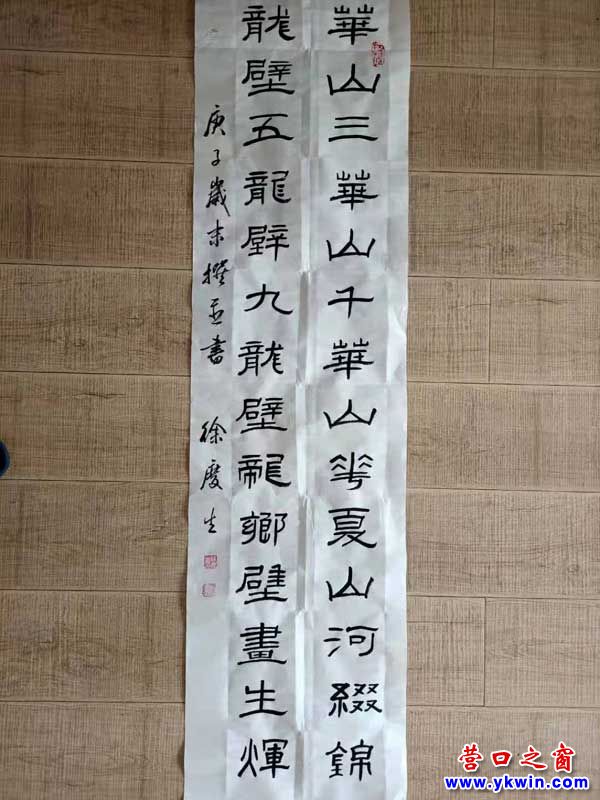 華山三華山千華山花夏山河綴錦
龍壁五龍壁九龍壁龍鄉壁畫生煇
庚子歲末撰並書 徐慶生
营口之窗
www.ykwin.com